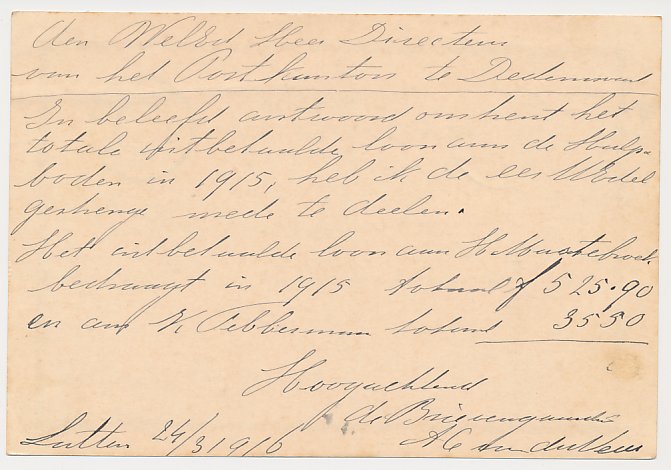 den WelEd Heer Directeur
van het Postkantoor te Dedemsvaart
In beleefd antwoord omtrent het
totale uitbetaalde loon aan de Hulp-
boden in 1915, heb ik de eer UEdel
gestrenge mede te deelen.
Het uitbetaalde loon aan H
bedraagt in 1915 totaal f 525.90
en aan K. totaal 35 50
Hoogachtend
de Brievengaarder
Lutten 24/3 1916